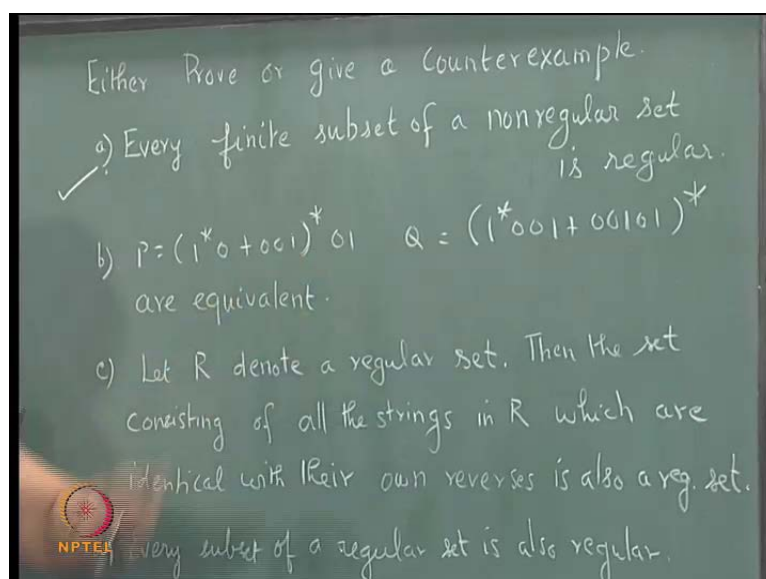 Either Prove or give a Counterexample.
a) Every finite subset of a nonregular set
is regular.
b) P = (1*0 + 001)* 01 Q = (1*001 + 00101)*
are equivalent.
c) Let R denote a regular set. Then the set
consisting of all the strings in R which are
identical with their own reverses is also a reg. set.
Every subset of a regular set is also regular.
NPTEL